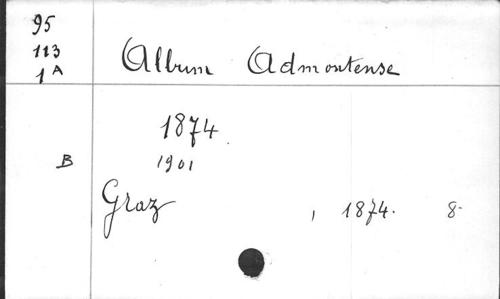 95
113
1A
Album Admontense
1874
B 1901
Graz, 1874. 8-